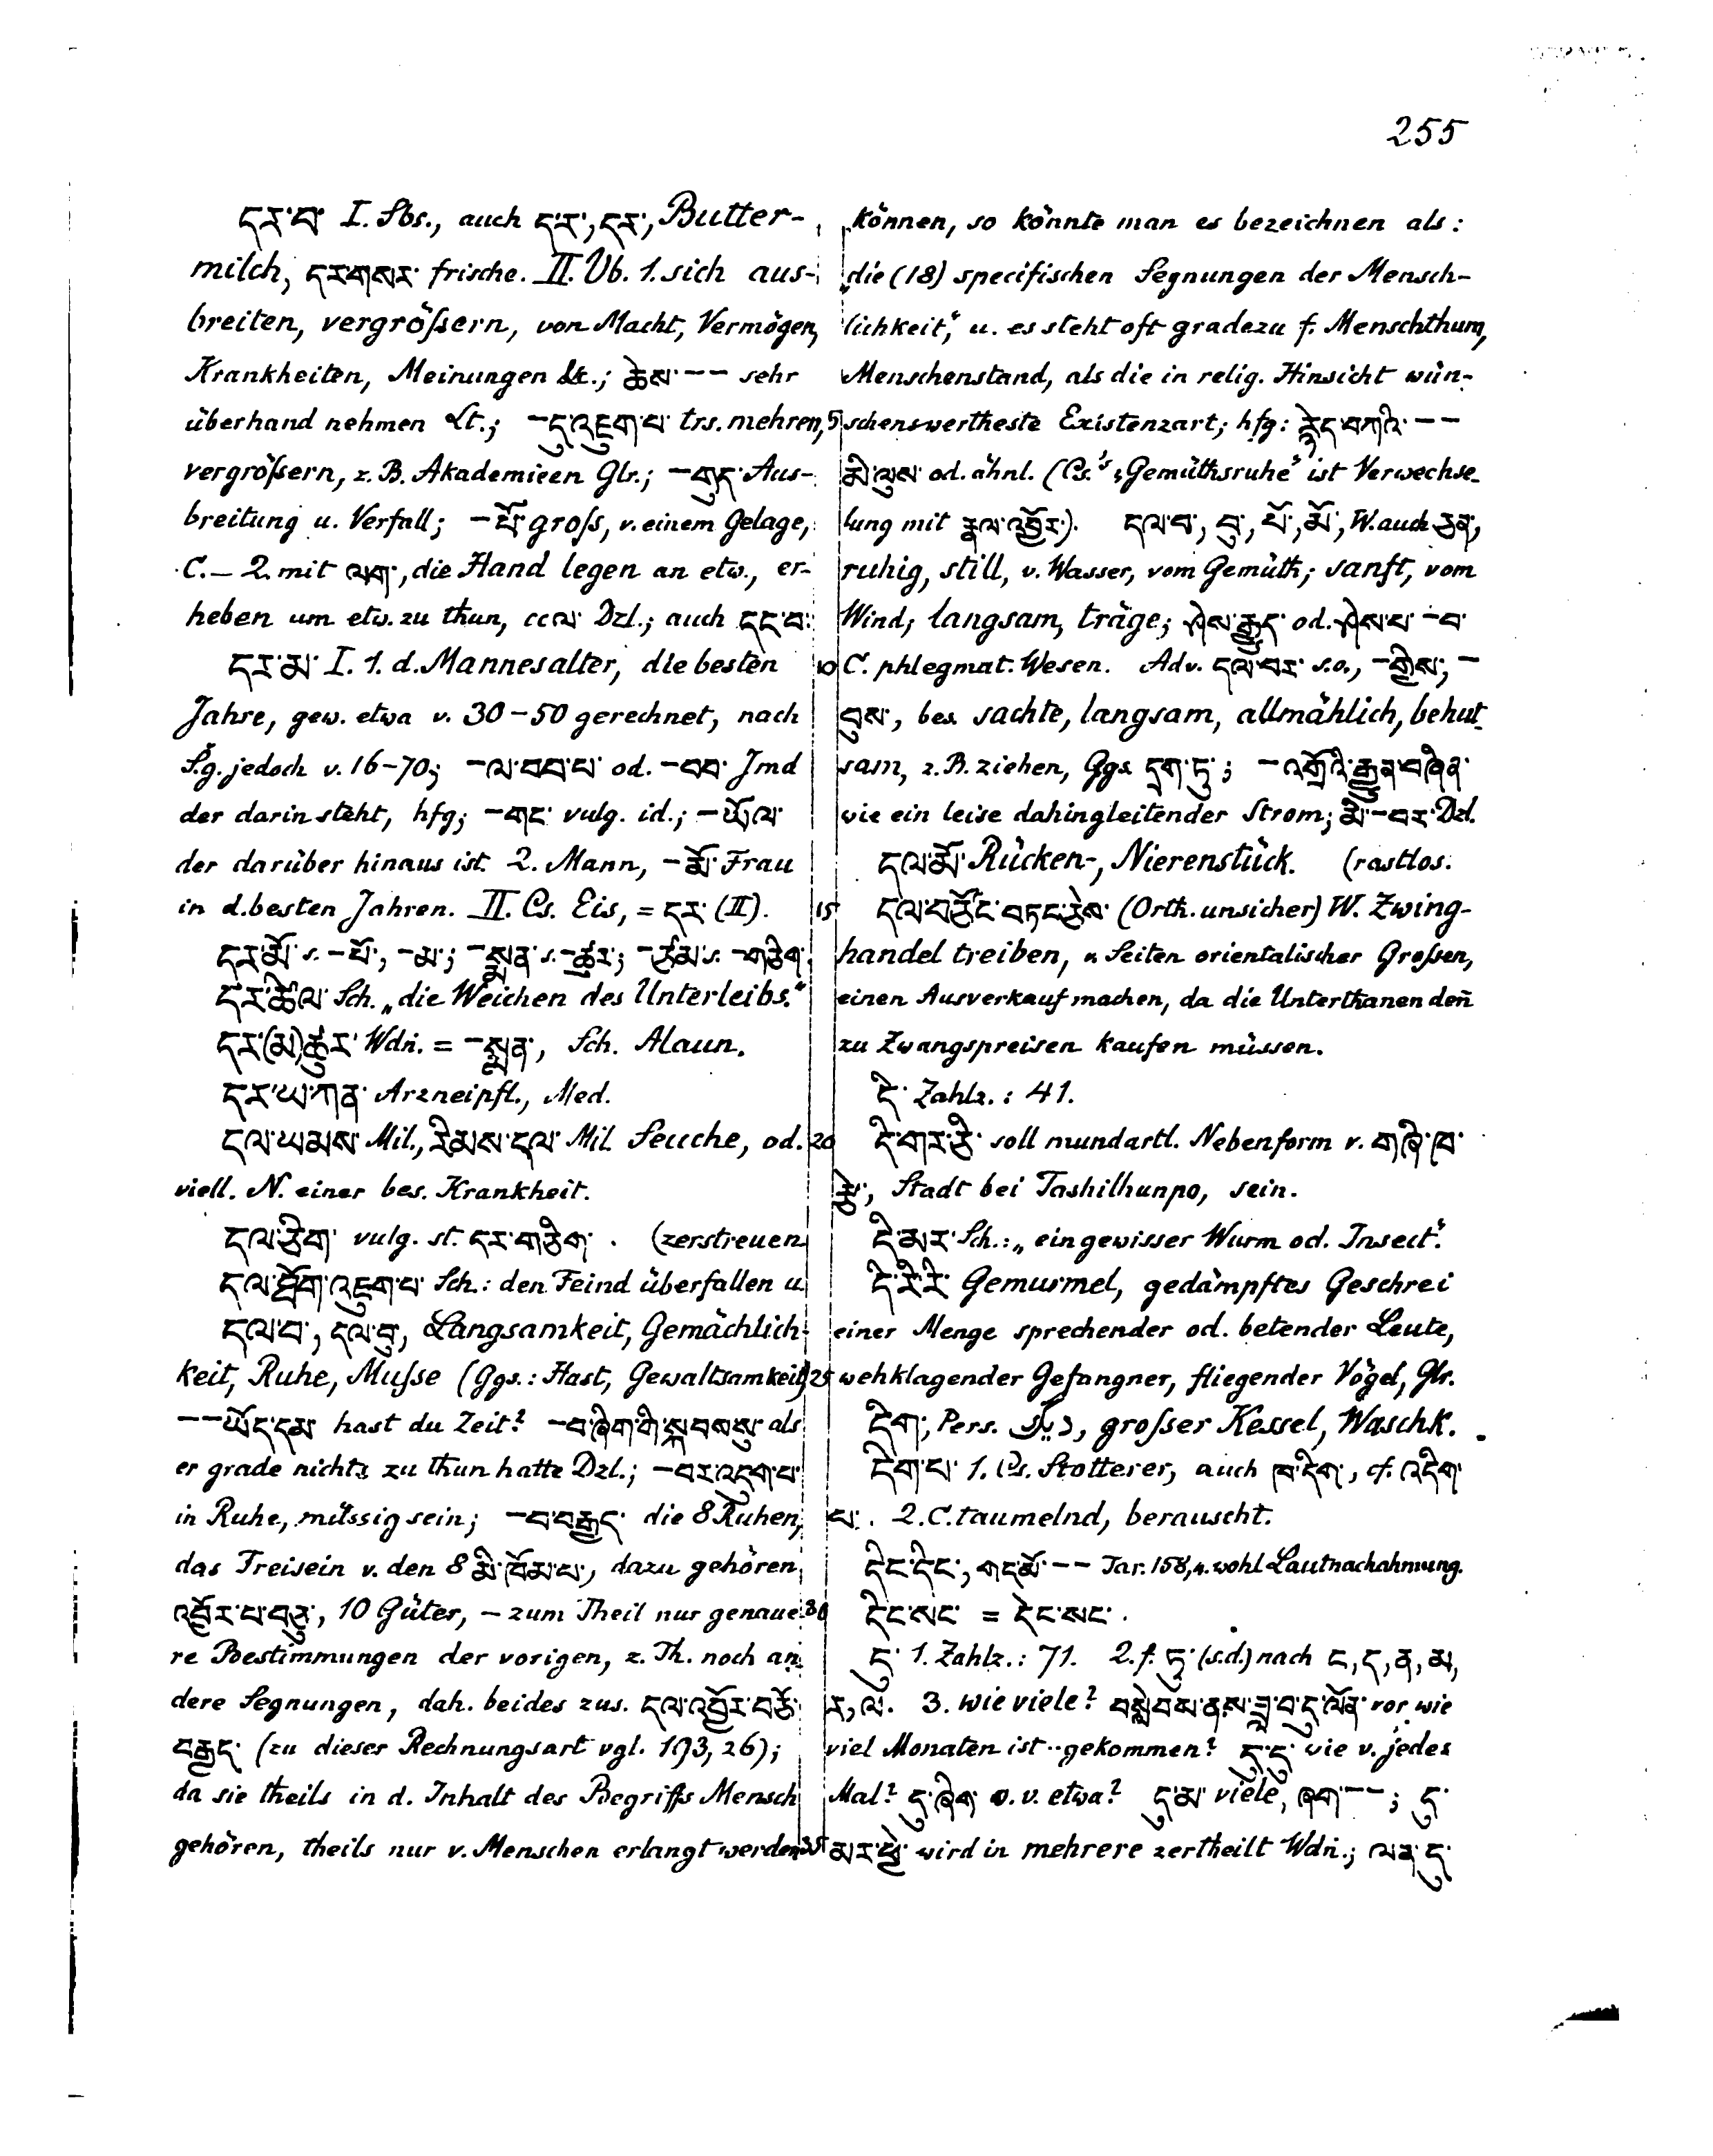 255
དར་བ་ I. Sbs., auch ད་ར་, དར་, Butter-
milch, དར་གསར་ frische. II. Vb. 1. sich aus-
breiten, vergrößern, von Macht, Vermögen,
Krankheiten, Meinungen &c.; ཆེས་ –– sehr
überhand nehmen Lt.; –དུ་འཇུག་པ་ trs. mehren, 5
vergrößern, z. B. Akademieen Glr.; –གུད་ Aus-
breitung u. Verfall; –པོ་ groß, v. einem Gelage,
C. – 2. mit ལག་, die Hand legen an etw., er-
heben um etw. zu thun, cc ལ་ Dzl.; auch དང་བ་.
དར་མ་ I. 1. d. Mannesalter, die besten 10
Jahre, gew. etwa v. 30–50 gerechnet, nach
S.g. jedoch v. 16–70; –ལ་བབ་པ་ od. –བབ་ Jmd
der darin steht, hfg; –གང་ vulg. id.; –ཡོལ་
der darüber hinaus ist. 2. Mann, –མོ་ Frau
in d. besten Jahren. II. Cs. Eis, = དར་ (II). 15
དར་མོ་ s. –པོ་, –མ་; –སྨན་ s. –ཚུར་; –ཙམ་ s. –གཅིག་.
དར་ཚིལ་ Sch. „die Weichen des Unterleibs.“
དར་(མ)ཚུར་ Wdn. = –སྨན་, Sch. Alaun.
དར་ཡ་ཀན་ Arzneipfl., Med.
དལ་ཡམས་ Mil., རིམས་དལ་ Mil. Seuche, od. 20
viell. N. einer bes. Krankheit.
དལ་ཅིག་ vulg. st. དར་གཅིག་. (zerstreuen
དལ་པྲོག་འཇུག་པ་ Sch.: den Feind überfallen u.
དལ་བ་, དལ་བུ་, Langsamkeit, Gemächlich-
keit, Ruhe, Muße (Ggs.: Hast, Gewaltsamkeit) 25
––ཡོད་དམ་ hast du Zeit? –བ་ཞིག་གི་སྐབས་སུ་ als
er grade nichts zu thun hatte Dzl.; –བར་འདུག་པ་
in Ruhe, müssig sein; –བ་བརྒྱད་ die 8 Ruhen,
das Freisein v. den 8 མི་ཁོམ་པ་, dazu gehören
འབྱོར་པ་བཅུ་, 10 Güter, – zum Theil nur genaue- 30
re Bestimmungen der vorigen, z. Th. noch an-
dere Segnungen, dah. beides zus. དལ་འབྱོར་བཅོ་
བརྒྱད་ (zu dieser Rechnungsart vgl. 193, 26);
da sie theils in d. Inhalt des Begriffs Mensch
gehören, theils nur v. Menschen erlangt werden 35
können, so könnte man es bezeichnen als:
„die (18) specifischen Segnungen der Mensch-
lichkeit,“ u. es steht oft gradezu f. Menschthum,
Menschenstand, als die in relig. Hinsicht wün-
schenswertheste Existenzart; hfg: རྙེད་བཀའི་ ––
མི་ལུས་ od. ähnl. (Cs.'s „Gemüthsruhe“ ist Verwechse-
lung mit རྣལ་འབྱོར་). དལ་བ་, བུ་, པོ་, མོ་, W. auch ཅན་,
ruhig, still, v. Wasser, vom Gemüth; sanft, vom
Wind; langsam, träge; ཤེས་རྒྱུད་ od. ཤེས་པ་ –བ་
C. phlegmat. Wesen. Adv. དལ་བར་ s.o., –གྱིས་, –
བུས་, bes. sachte, langsam, allmählich, behut-
sam, z. B. ziehen, Ggs. དྲག་ཏུ་; –འགྲོའི་རྒྱུན་བཞིན་
wie ein leise dahingleitender Strom; མི་–བར་ Dzl.
དལ་མོ་ Rücken-, Nierenstück. (rastlos.
དལ་བཙོང་བཏང་ཅེས་ (Orth. unsicher) W. Zwing-
handel treiben, v. Seiten orientalischer Großen,
einen Ausverkauf machen, da die Unterthanen den̄
zu Zwangspreisen kaufen müssen.
དི་ Zahlz.: 41.
དི་གར་ཅི་ soll mundartl. Nebenform v. གཞི་ཁ་
རྩེ་, Stadt bei Tashilhunpo, sein.
དི་མར་ Sch.: „ein gewisser Wurm od. Insect.“
དི་རི་རི་ Gemurmel, gedämpftes Geschrei
einer Menge sprechender od. betender Leute,
wehklagender Gefangner, fliegender Vögel, Glr.
དིག་, Pers. دیگ, großer Kessel, Waschk.
དིག་པ་ 1. Cs. Stotterer, auch ཁ་དིག་, cf. འདིག་
པ་. 2. C. taumelnd, berauscht.
དིང་དིང་, གད་མོ་ –– Tar. 158,4. wohl Lautnachahmung.
དིང་སང་ = དེང་སང་.
དུ་ 1. Zahlz.: 71. 2. f. ཏུ་ (s.d.) nach ང, ད, ན, མ,
ར, ལ. 3. wie viele? བསླེབས་ནས་ཟླ་བ་དུ་ལོན་ vor wie
viel Monaten ist .. gekommen? དུ་དུ་ wie v. jedes
Mal? དུ་ཞིག་ o. v. etwa? དུ་མ་ viele, ཞག་––; དུ་
མར་ཕྱེ་ wird in mehrere zertheilt Wdn.; ལན་དུ་